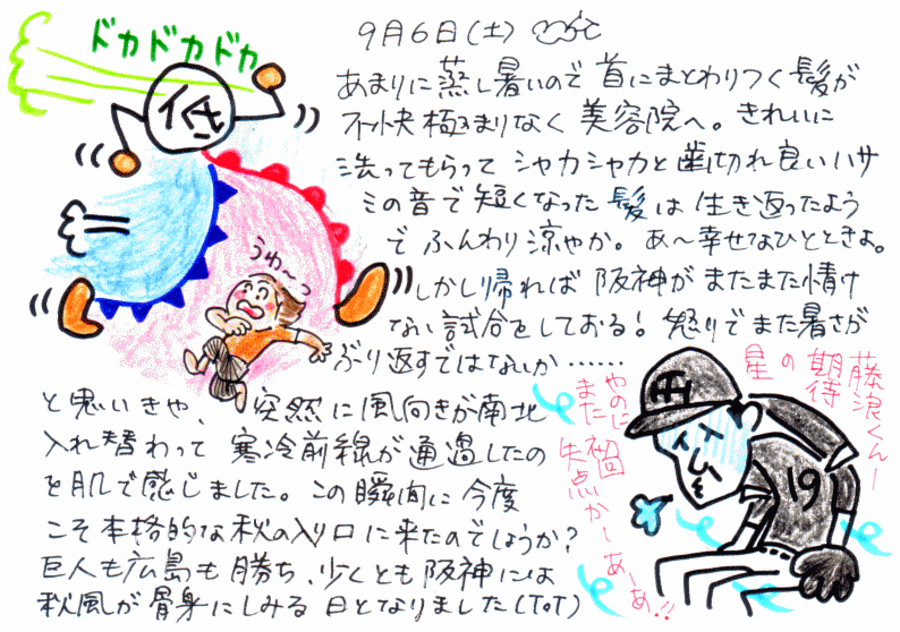 ドカドカドカ
低
うわ〜
9月6日(土)
あまりに蒸し暑いので首にまとわりつく髪が
不快極まりなく美容院へ。きれいに
洗ってもらってシャカシャカと歯切れ良いハサ
ミの音で短くなった髪は生き返ったよう
でふんわり涼やか。あ〜幸せなひとときよ。
しかし帰れば阪神がまたまた情け
ない試合をしておる!怒りでまた暑さが
ぶり返すではないか……
と思いきや、突然に風向きが南北
入れ替わって寒冷前線が通過したの
を肌で感じました。この瞬間に今度
こそ本格的な秋の入り口に来たのでしょうか?
巨人も広島も勝ち、少くとも阪神には
秋風が骨身にしみる日となりました(ToT)
藤浪くんー
期待
の
星
やのに
また
初回
失点かーあ〜あ!!
19